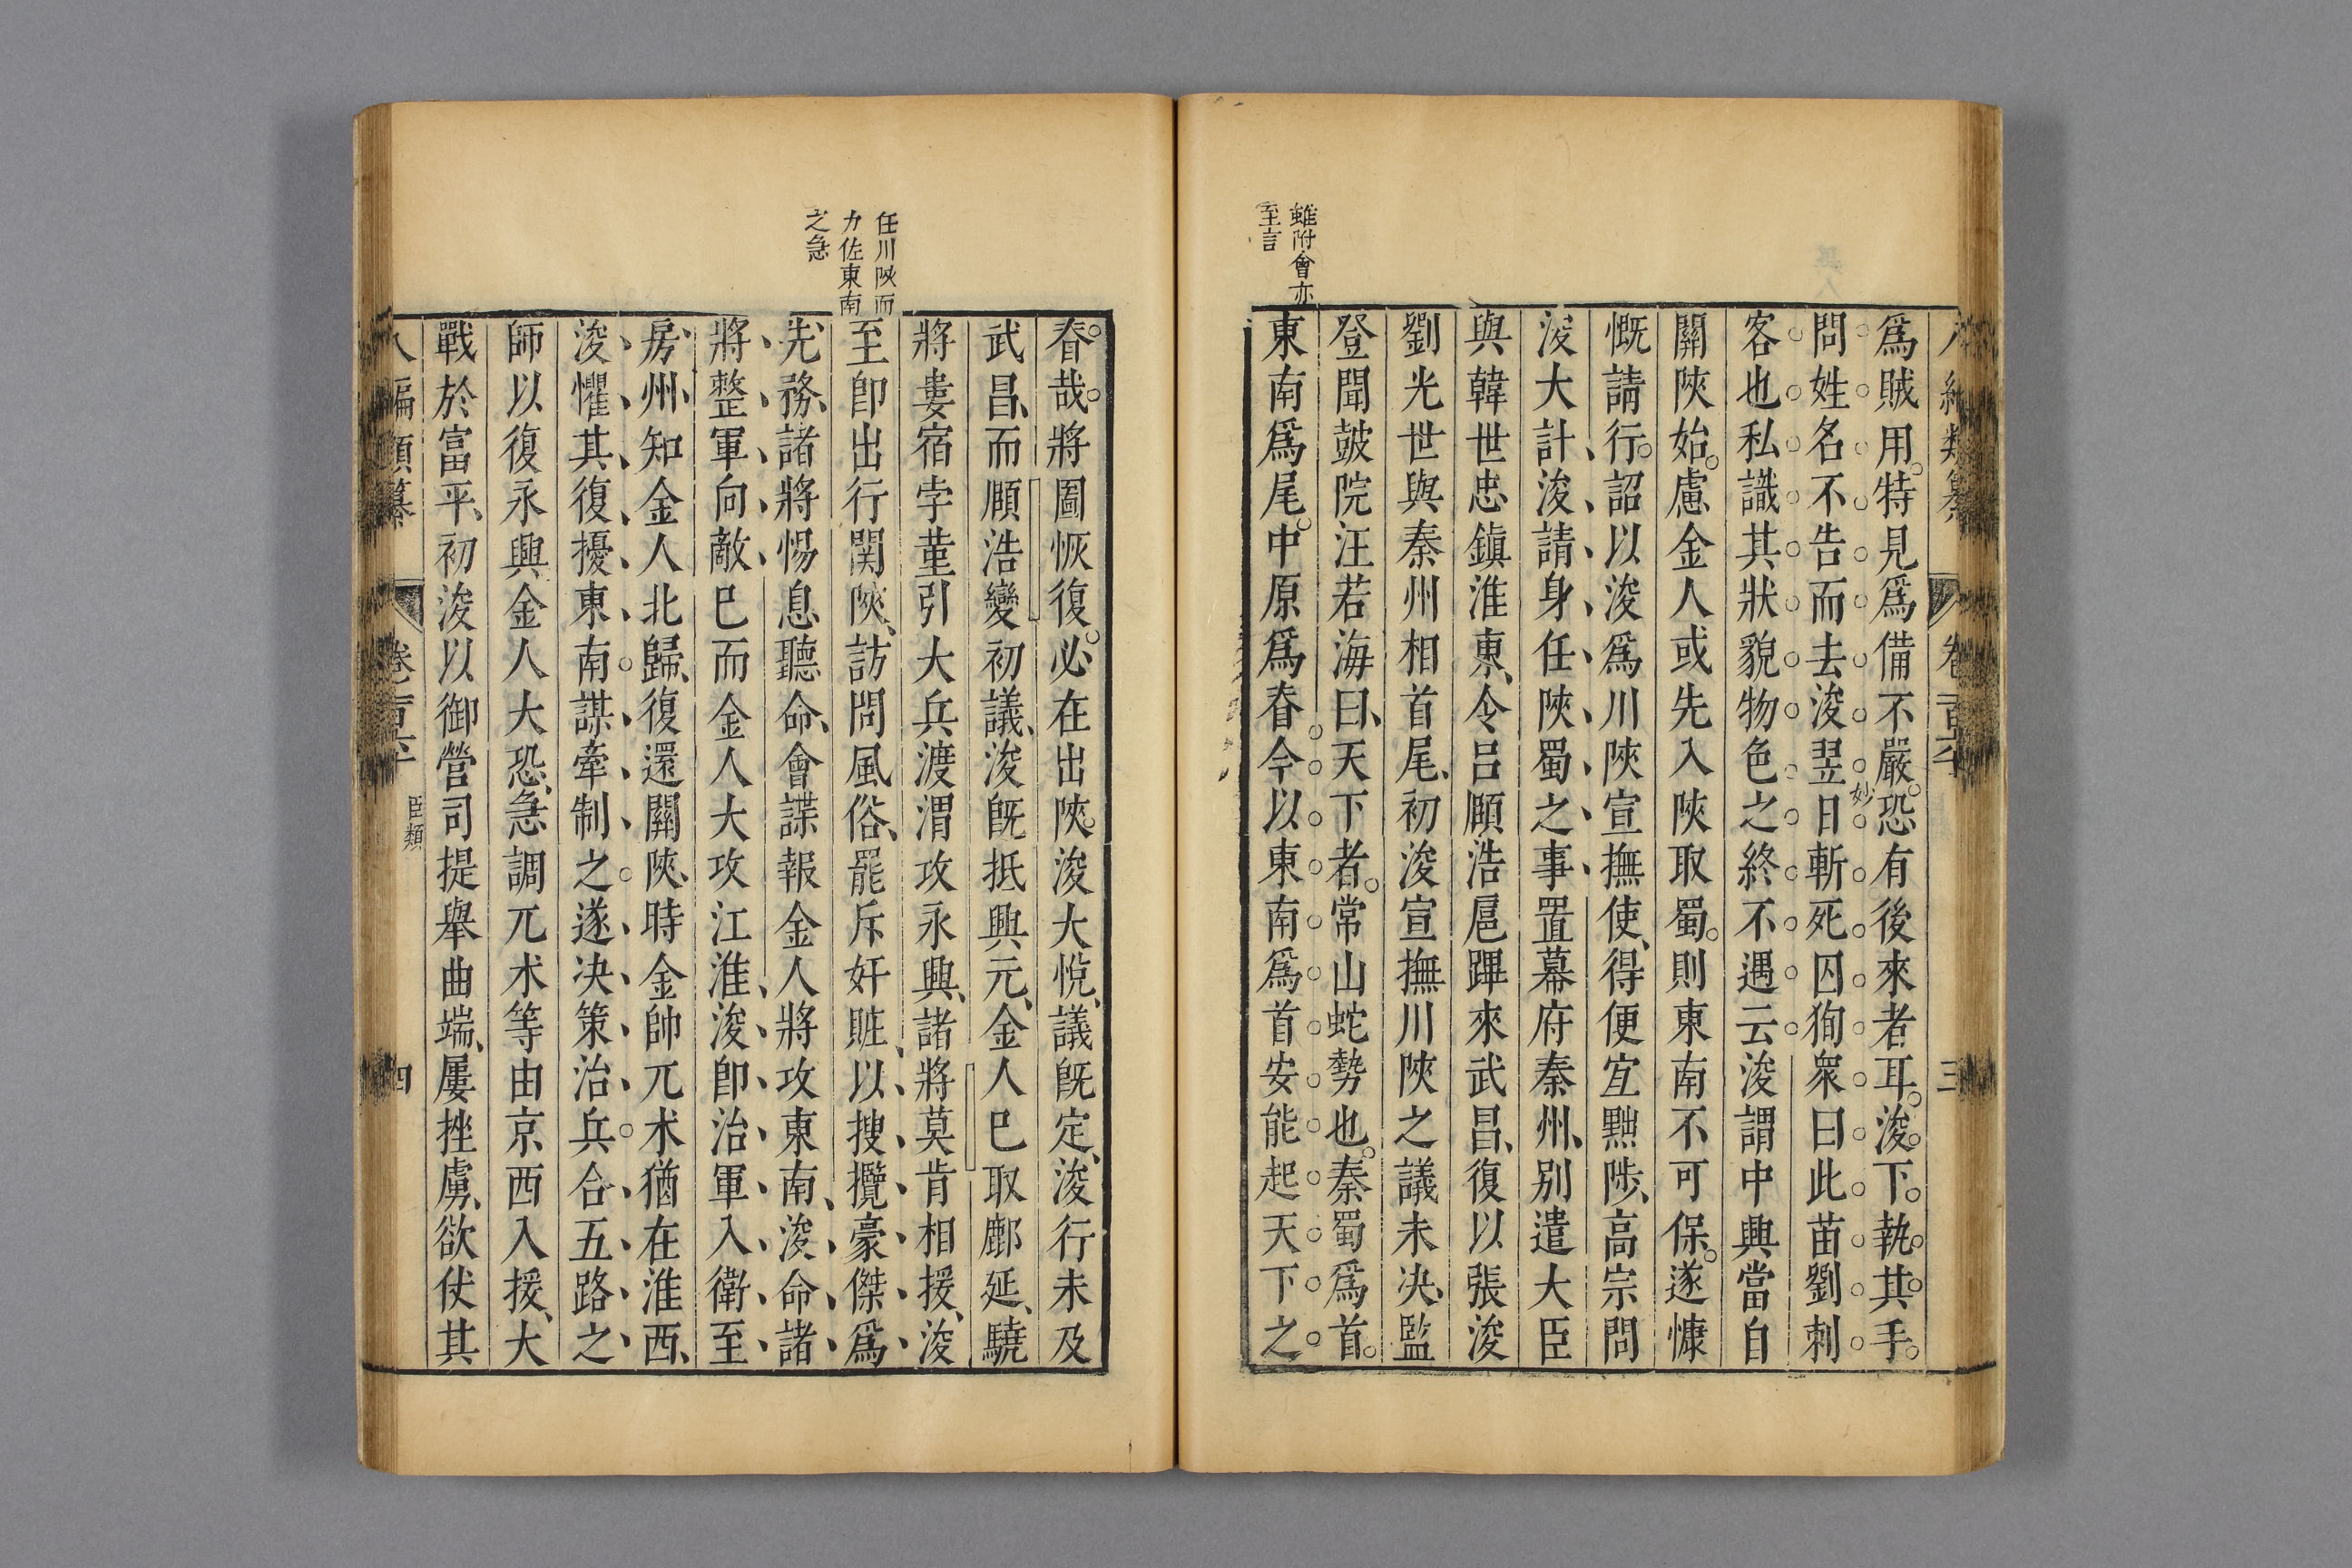 八編類纂 卷一百六 三
爲賊用特見爲備不嚴恐有後來者耳浚下執其手
妙
問姓名不告而去浚翌日斬死囚狥衆曰此苗劉刺
客也私識其狀貌物色之終不遇云浚謂中興當自
關陝始慮金人或先入陝取蜀則東南不可保遂慷
慨請行詔以浚爲川陝宣撫使得便宜黜陟高宗問
浚大計浚請身任陝蜀之事置幕府秦州别遣大臣
與韓世忠鎮淮東令呂頥浩扈蹕來武昌復以張浚
劉光世與秦州相首尾初浚宣撫川陝之議未决監
登聞皷院汪若海曰天下者常山蛇勢也秦蜀爲首
東南爲尾中原爲脊今以東南爲首安能起天下之
雖附會亦
至言
脊哉將圖恢復必在出陝浚大悅議旣定浚行未及
武昌而頥浩變初議浚旣抵興元金人已取鄜延驍
將婁宿孛堇引大兵渡渭攻永興諸將莫肯相援浚
至卽出行関陝訪問風俗罷斥奸賍以搜攬豪傑爲
先務諸將惕息聽命會諜報金人將攻東南浚命諸
將整軍向敵已而金人大攻江淮浚卽治軍入衛至
房州知金人北歸復還關陝時金帥兀术猶在淮西
浚懼其復擾東南謀牽制之遂决策治兵合五路之
師以復永興金人大恐急調兀术等由京西入援大
戰於富平初浚以御營司提舉曲端屢挫虜欲仗其
任川陝而
力佐東南
之急
八編類纂 卷一百六 臣類 四